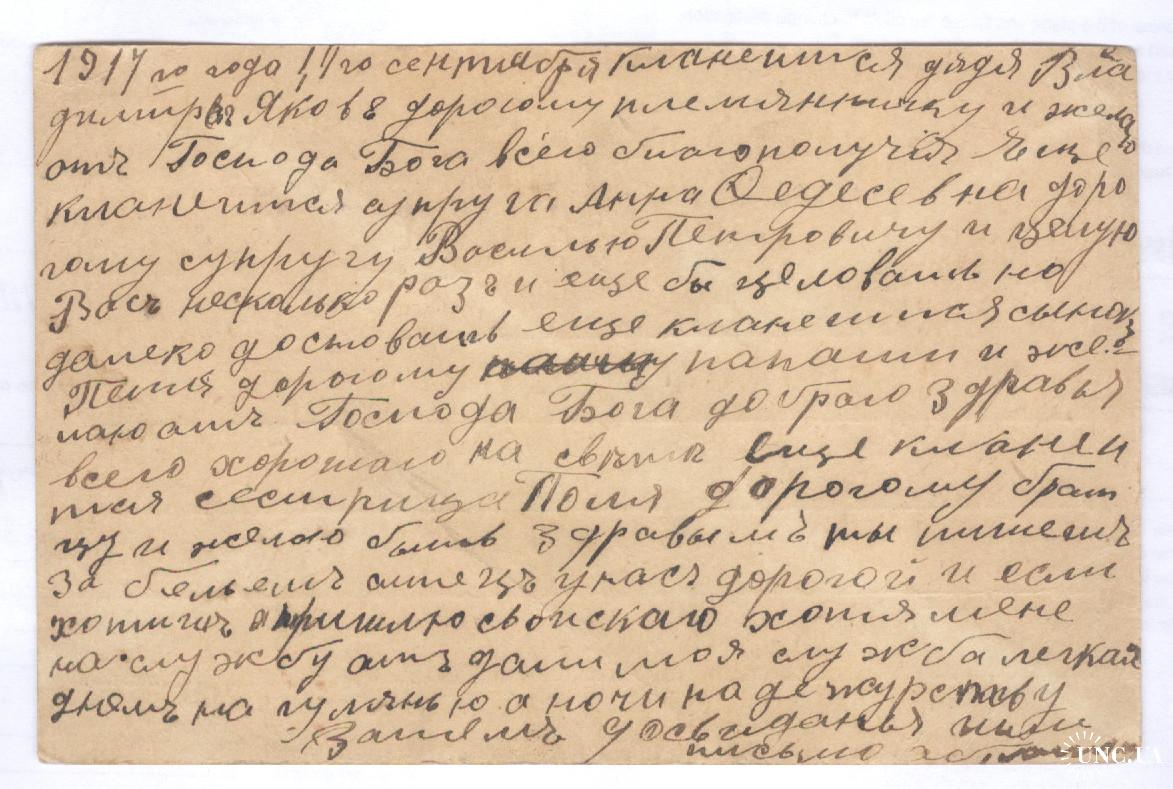 1917 го года 11 го сентября кланеится дядя Вла
димиръ Яковъ дорогому племяннику и желаю
отъ Господа Бога всего благополучія Я еще
кланеится супруга Анна Федесевна доро
гому супругу Василью Петровичу и целую
Васъ несколько разъ и еще бы целовать но
далеко доставать еще кланеится сынок
Петя дорогому папаши и же
лаю отъ Господа Бога добраго здравья
всего хорошаго на свѣти еще кланеи
тся сестрица Поля дорогому брат
цу и желаю быть здравымъ ты пишешъ
за бельемъ отецъ у насъ дорогой и если
хотишъ пришлю свойскаго хотя мене
на службу отъ дали моя служба легкая
днемъ на гулянью а ночи на дежурству
Затемъ досвиданья пиши
письмо
UNC.UA